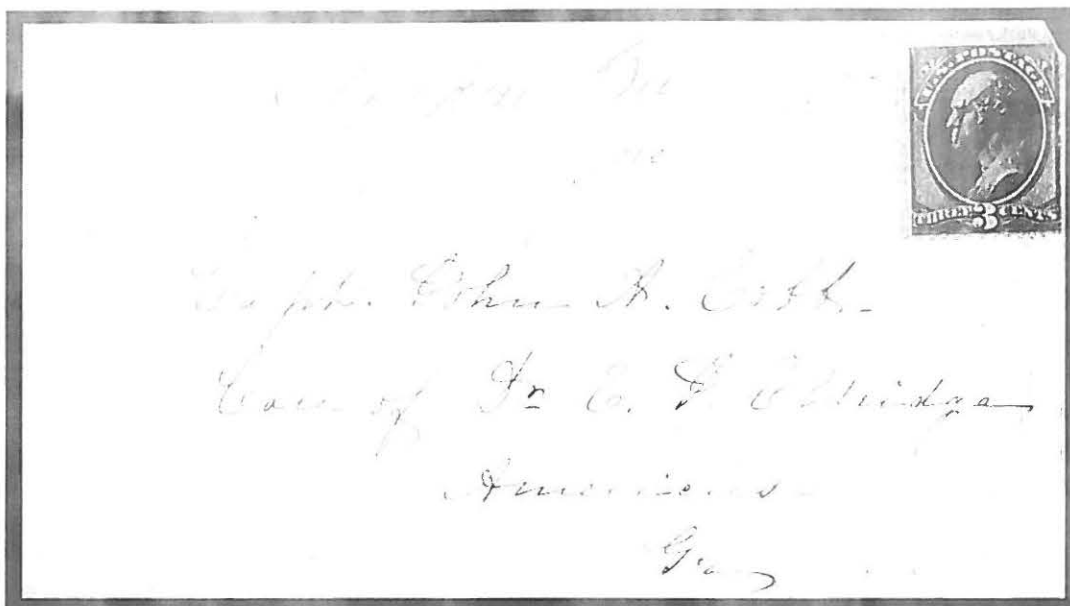 U.S. POSTAGE
THREE 3 CENTS
Capt. John A. Cobb.
Care of Dr E. F. Eldridge
Americus
Ga